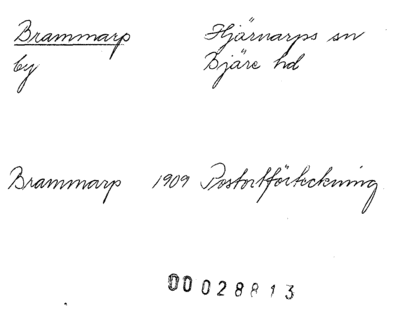 Brammarp Hjärnarps sn
by Bjäre hd
Brammarp 1909 Postortförteckning
00028813